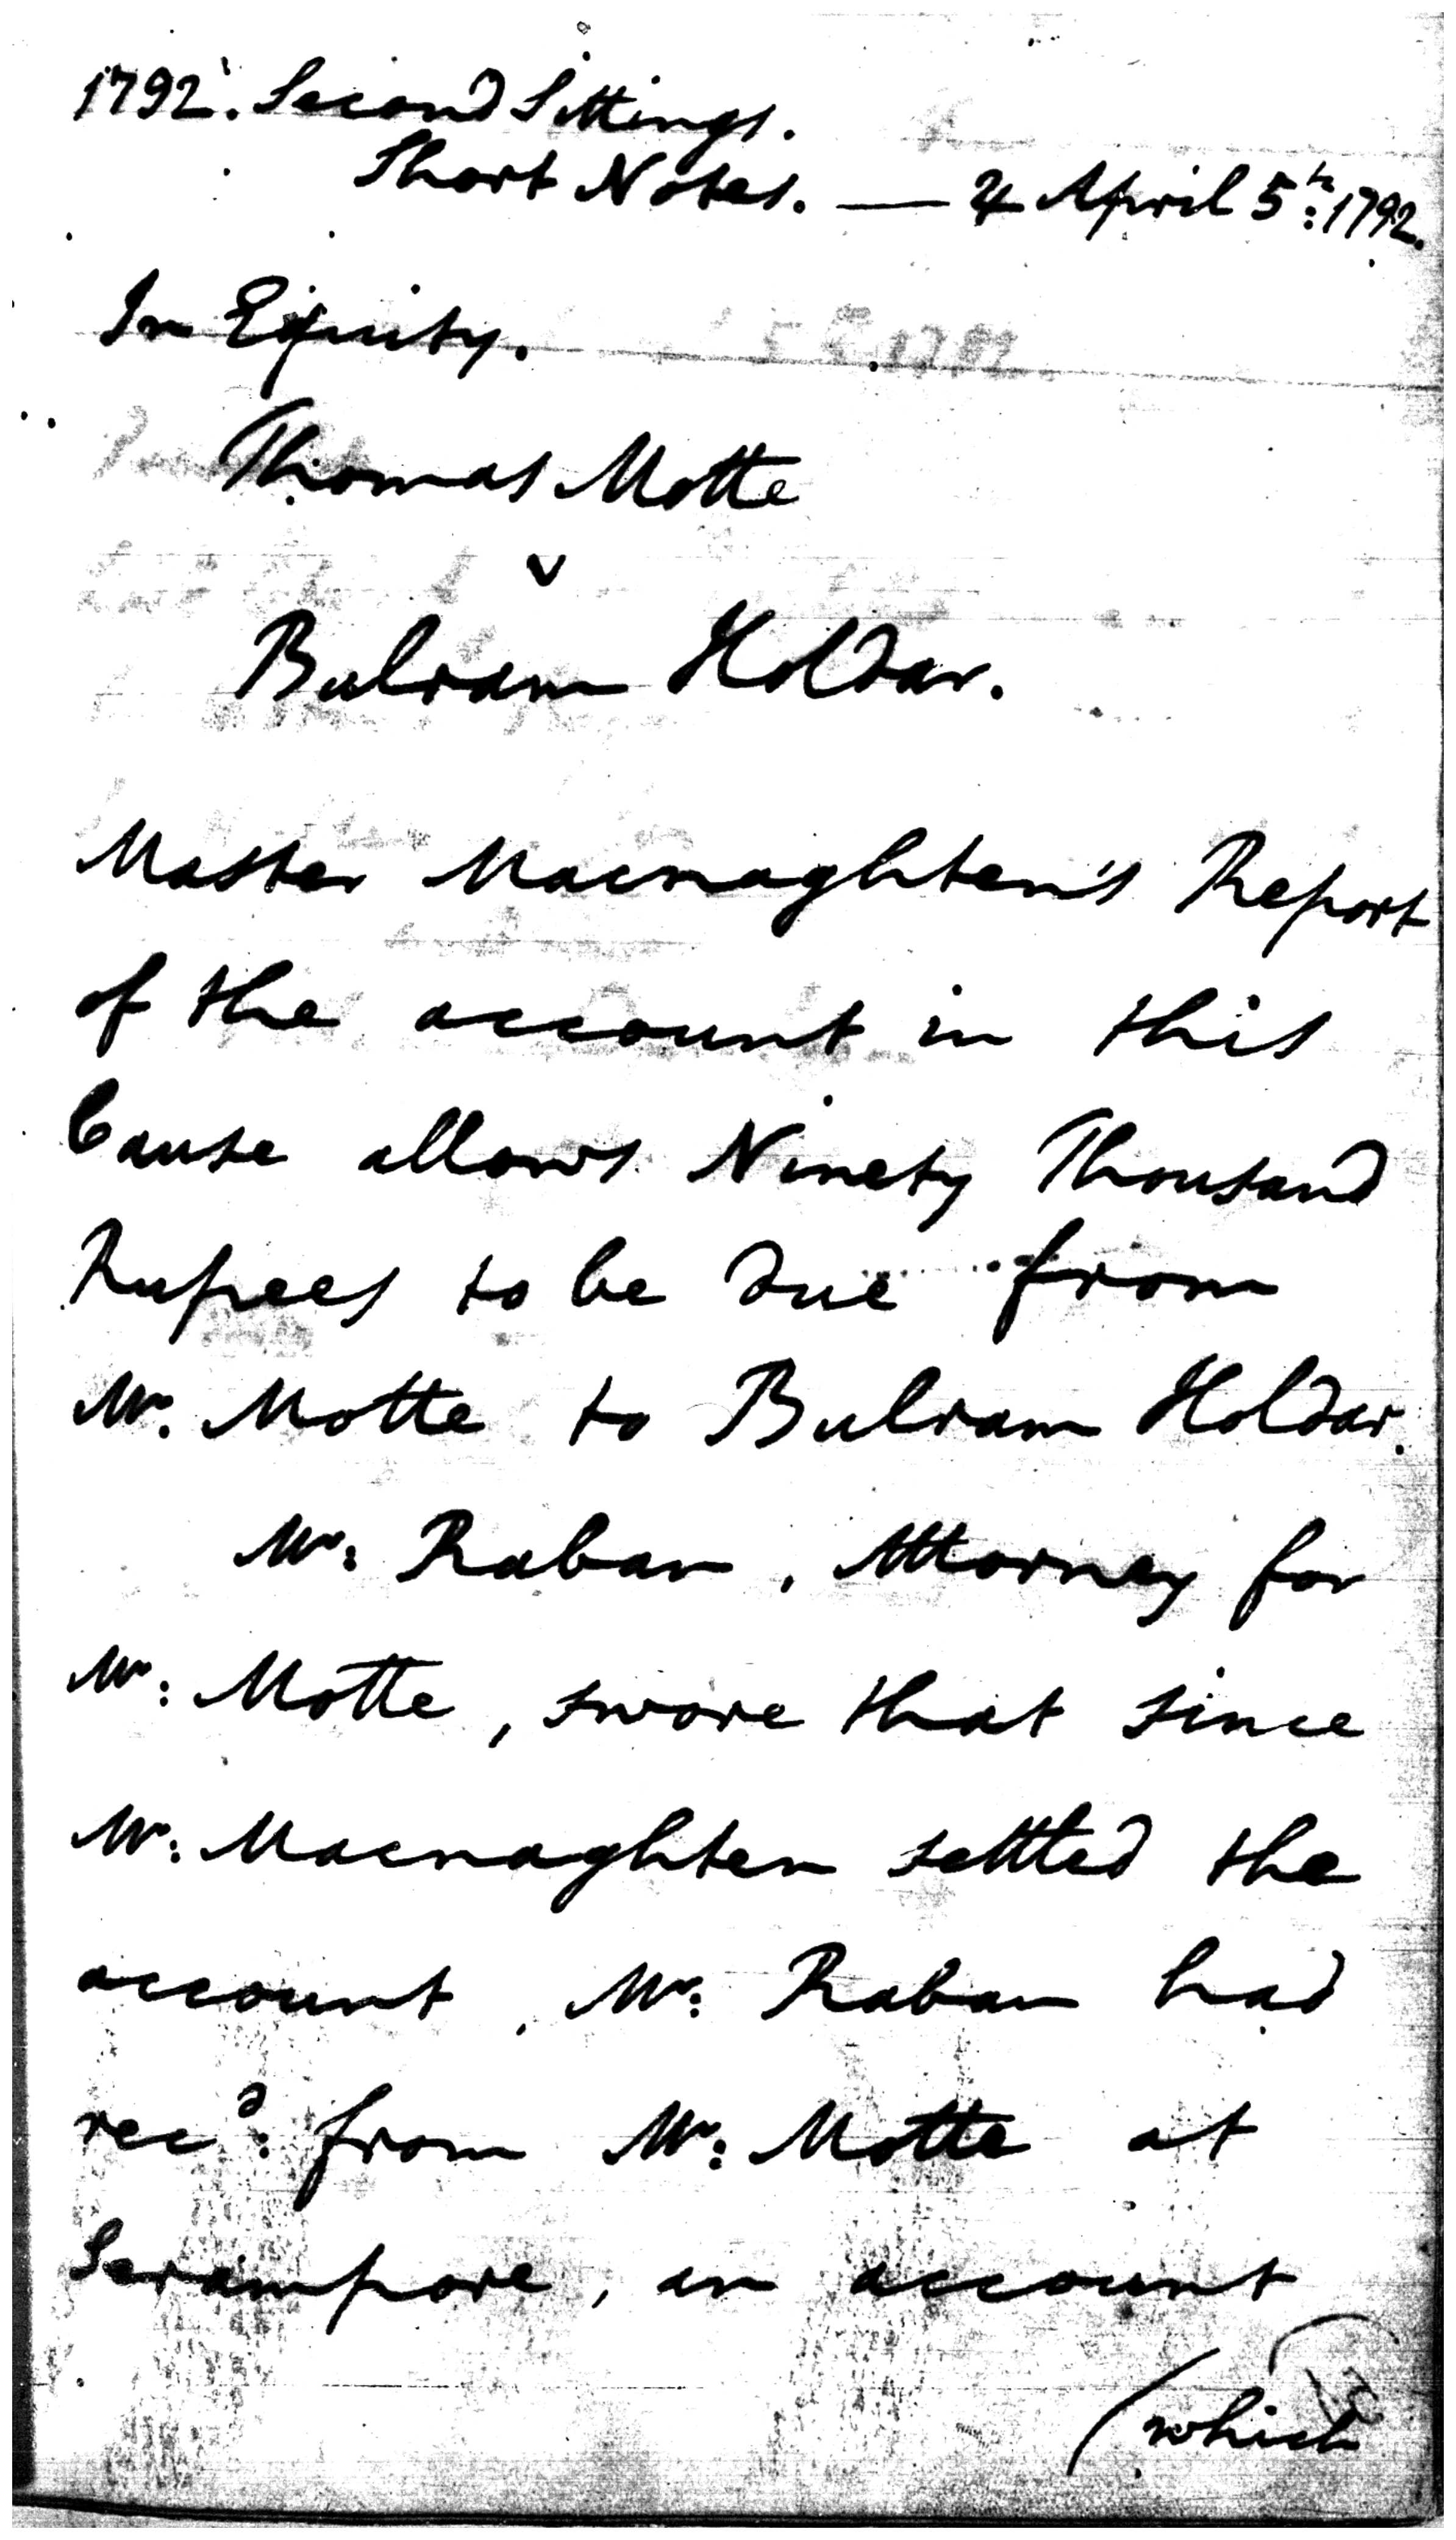 1792. Second Sittings.
Short Notes. — ♃ April 5th: 1792.
In Equity.
Thomas Motte
v
Bulram Holdar.
Master Macnaghten's Report
of the account in this
Cause allows Ninety Thousand
Rupees to be due from
Mr. Motte to Bulram Holdar.
Mr: Raban, Attorney for
Mr: Motte, swore that since
Mr: Macnaghten settled the
account, Mr: Raban had
recd: from Mr: Motte at
Serampore, an account
(which